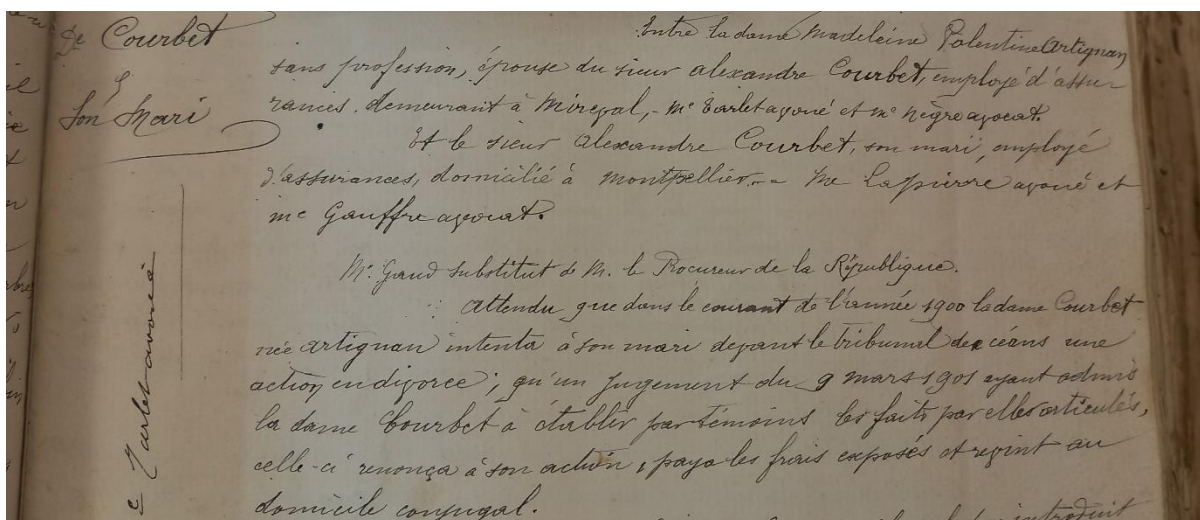 De Courbet
&
Son Mari
Entre la dame Madeleine Palentine Artignan
sans profession, épouse du sieur Alexandre Courbet, employé d'assu-
rances, demeurant à Mireval, - Me Tarlet avoué et Me Nègre avocat.
Et le sieur Alexandre Courbet, son mari, employé
d'assurances, domicilié à Montpellier. - Me Lapierre avoué et
Me Gauffre avocat.
Mr. Gaud substitut de M. le Procureur de la République.
Attendu que dans le courant de l'année 1900 la dame Courbet
née Artignan intenta à son mari devant le tribunal de céans une
action en divorce ; qu'un jugement du 9 mars 1901 ayant admis
la dame Courbet à établir par témoins les faits par elles articulés,
celle-ci renonça à son action, paya les frais exposés et revint au
domicile conjugal.
introduit
Me Tarlet avoué